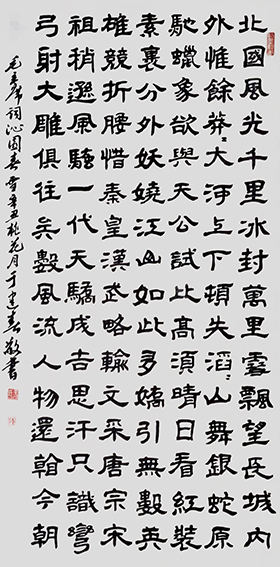 北國風光千里冰封萬里雪飄望長城內
外惟餘莽々大河上下頓失滔々山舞銀蛇原
馳蠟象欲與天公試比高須晴日看紅裝
素裹分外妖嬈江山如此多嬌引無數英
雄競折腰惜秦皇漢武略輸文采唐宗宋
祖稍遜風騷一代天驕成吉思汗只識彎
弓射大雕俱往矣數風流人物還看今朝
毛主席詞沁園春雪辛丑桃花月于建春敬書